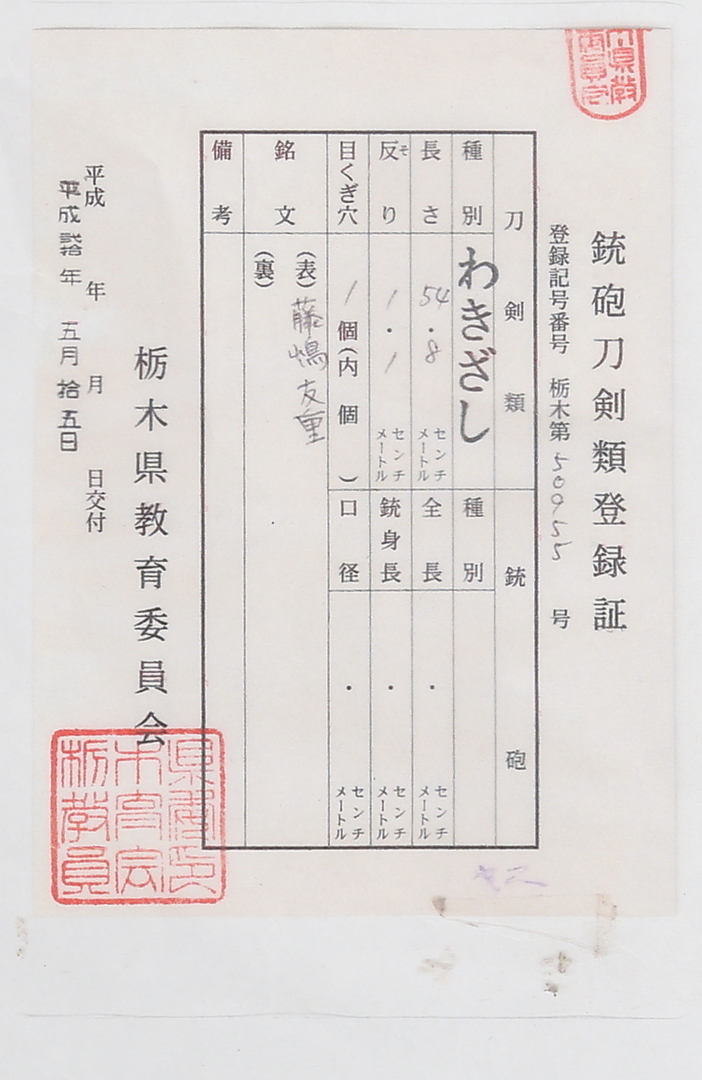 銃砲刀剣類登録証
登録記号番号 栃木第50955号
刀剣類
種別 わきざし
長さ 54.8 センチメートル
反り そ 1.1 センチメートル
目くぎ穴 1個(内 個)
銘文 (表)藤嶋友重
(裏)
備考
銃砲
種別
全長 ・ センチメートル
銃身長 ・ センチメートル
口径 ・ センチメートル
栃木県教育委員会
平成 年 月 日交付
平成 弐拾年 五月 拾五日